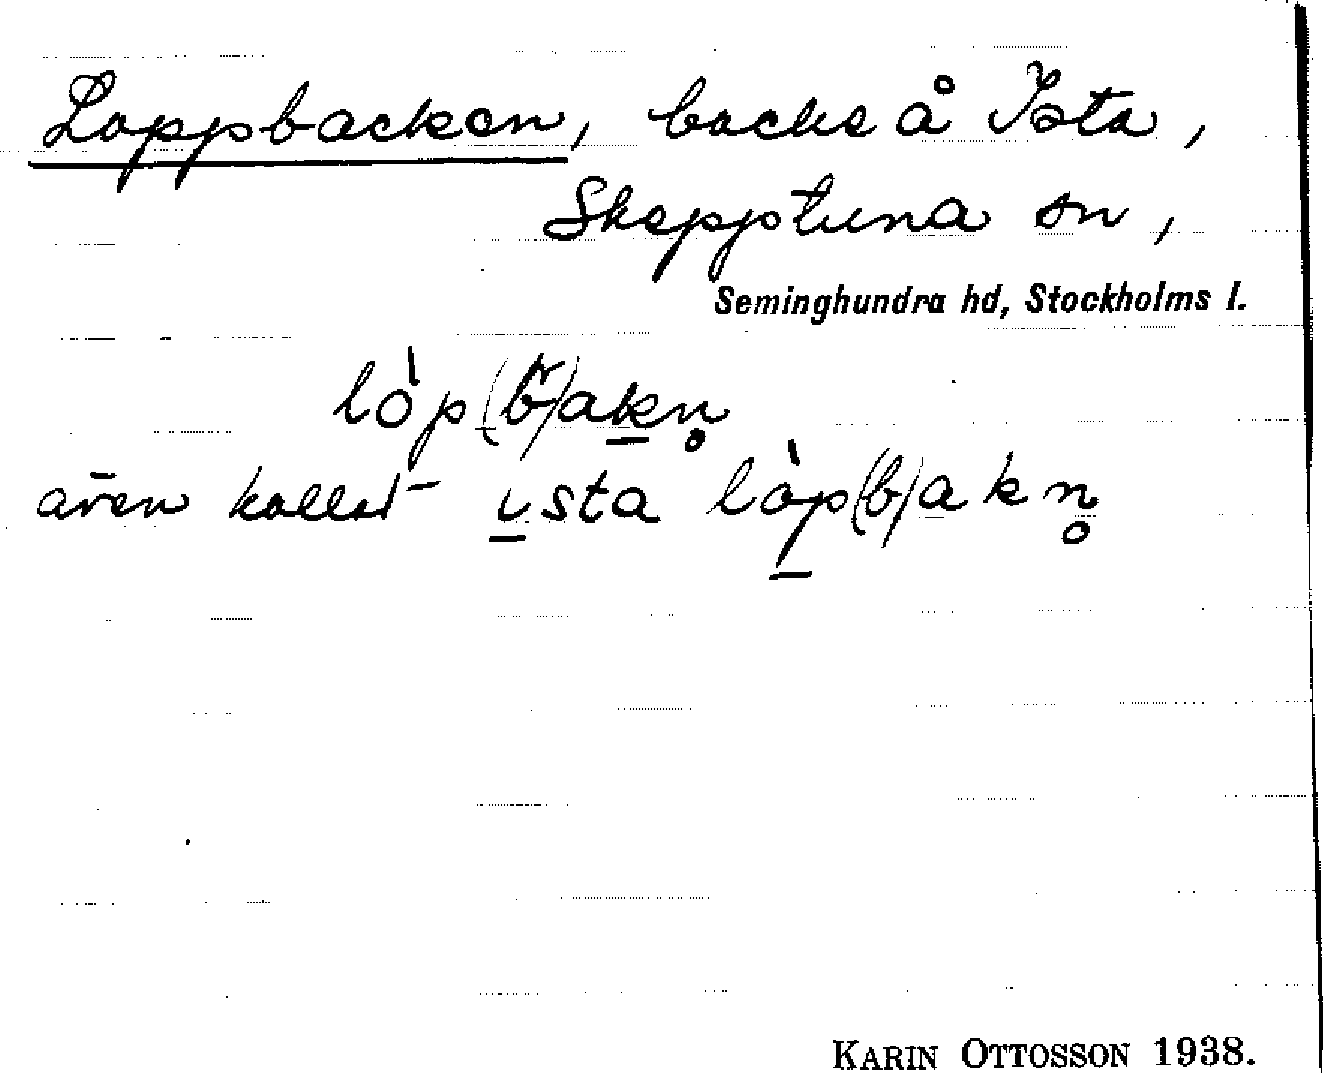 Loppbacken, backe å Ista,
Skepptuna sn,
Seminghundra hd, Stockholms l.
lòp(b)akn̥
även kallat ista lòp(b)akn̥
KARIN OTTOSSON 1938.